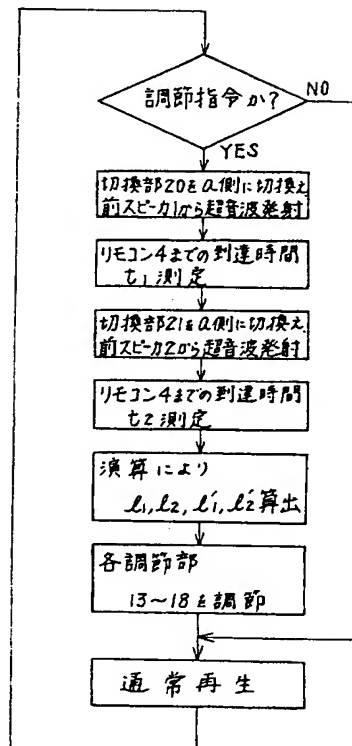 調節指令か?
NO
YES
切換部20をa側に切換え,
前スピーカ1から超音波発射
リモコン4までの到達時間
t1測定
切換部21をa側に切換え,
前スピーカ2から超音波発射
リモコン4までの到達時間
t2測定
演算により
l1,l2,l1',l2'算出
各調節部
13~18を調節
通常再生